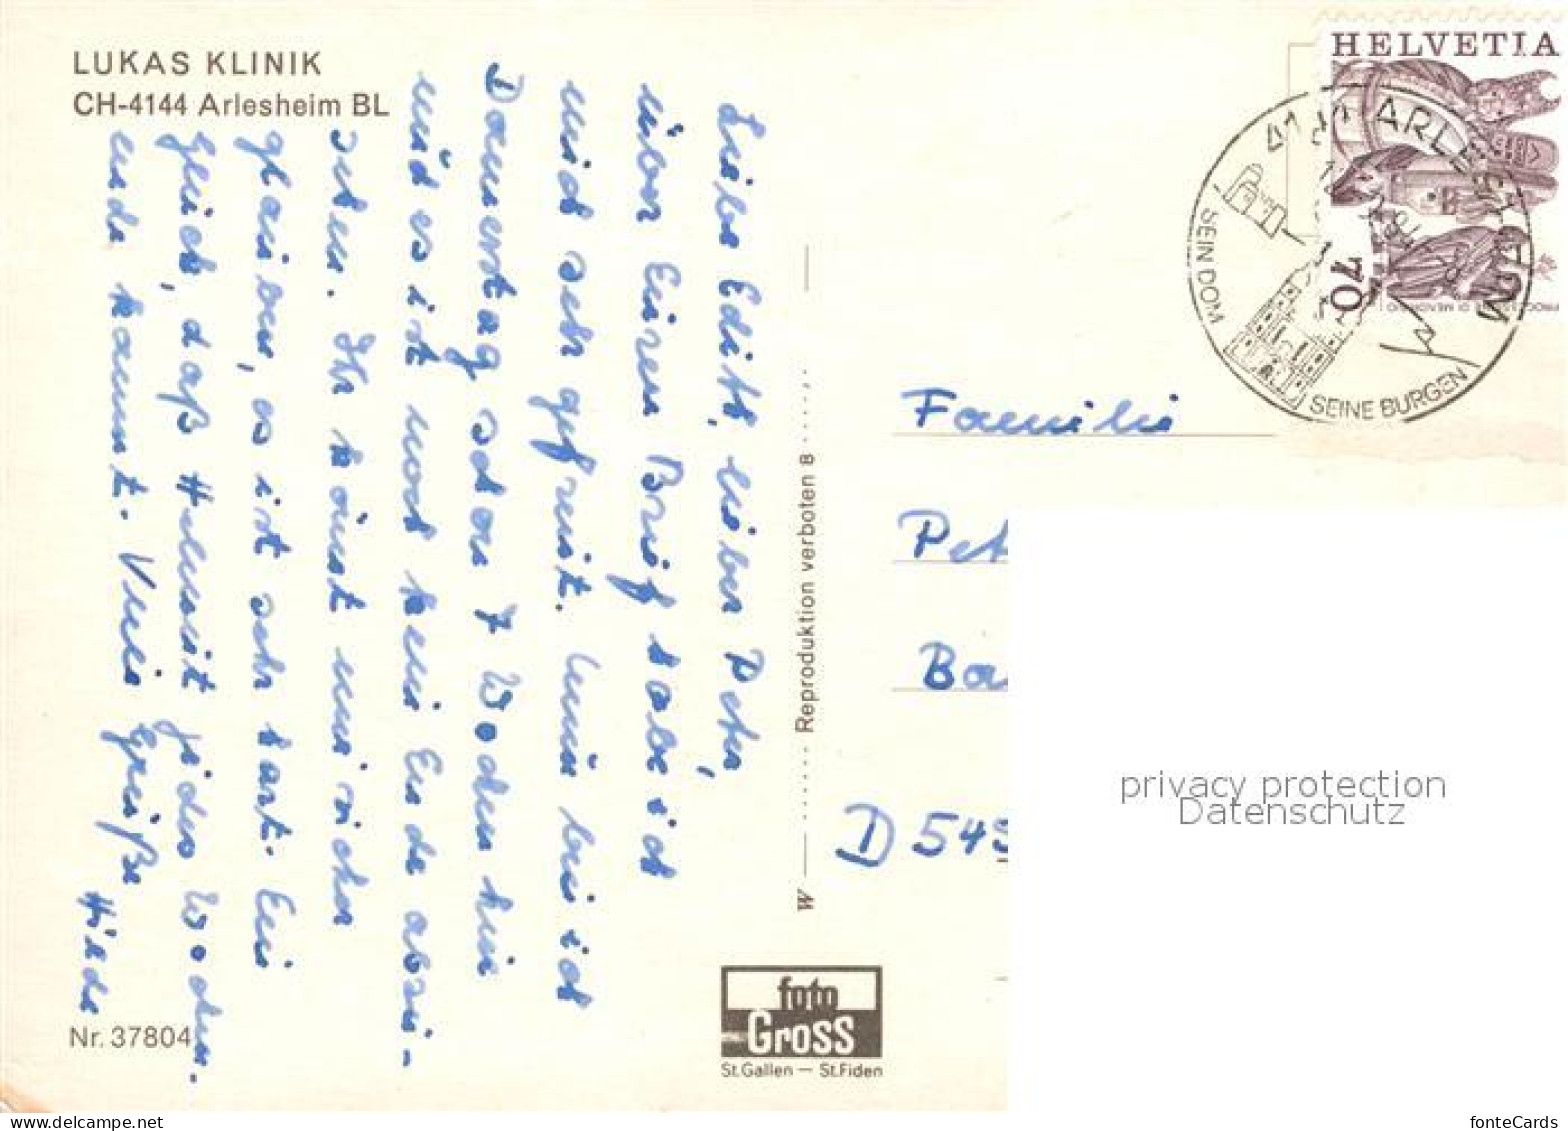 LUKAS KLINIK
CH-4144 Arlesheim BL
Liebe Edith, lieber Peter,
über Euren Brief habe ich
mich sehr gefreut. Nun bin ich
Donnerstag schon 7 Wochen hier
und es ist noch kein Ende abzu-
sehen. Ihr könnt mir sicher
glauben, es ist sehr hart. Ein
Glück, daß Helmut jedes Wochen-
ende kommt. Viele Grüße
Hilde
Nr. 37804
W Reproduktion verboten 8
foto
Gross
St.Gallen — St.Fiden
HELVETIA
70
4144 ARLESHEIM
SEIN DOM
SEINE BURGEN
Familie
Pet
Ba
D 545
privacy protection
Datenschutz
fonteCards